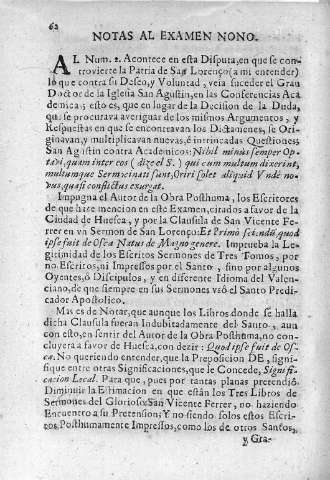 62
NOTAS AL EXAMEN NONO.
AL Num. 2. Acontece en esta Disputa, en que se con-
trovierte la Patria de San Lorenço (a mi entender)
lo que contra su Deseo, y Voluntad, veía suceder el Gran
Doctor de la Iglesia San Agustin, en las Conferencias Aca
demicas; esto es, que en lugar de la Decision de la Duda,
que se procurava averiguar de los mismos Argumentos, y
Respuestas en que se encontravan los Dictamenes, se Ori-
ginavan, y multiplicavan nuevas, é intrincadas Questiones.
San Agustin contra Academicos: Nibil minus semper Op-
tavi, quam inter eos (dize el S.) qui cum multum dixerint,
multumque Sermocinati sunt, Oriri solet aliquid Vndè no-
bus, quasi conflictus exurgat.
Impugna el Autor de la Obra Posthuma, los Escritores
de que hize mencion en este Examen, citados a favor de la
Ciudad de Huesca, y por la Clausula de San Vicente Fer-
rer en vn Sermon de San Lorenço: Et Primò sciendũ, quod
ipse fuit de Osca Natus de Magno genere. Imprueba la Le-
gitimidad de los Escritos Sermones de Tres Tomos, por
no Escritos, ni Impressos por el Santo, sino por algunos
Oyentes, ò Discipulos, y en diferente Idioma del Valen-
ciano, de que siempre en sus Sermones vsó el Santo Predi
cador Apostolico.
Mas es de Notar, que aunque los Libros donde se halla
dicha Clausula fueran Indubitadamente del Santo, aun
con esto, en sentir del Autor de la Obra Posthuma, no con-
cluyera a favor de Huesca, con dezir: Quod ipse fuit de Os-
ca. No queriendo entender, que la Preposicion DE, signi-
fique entre otras Significaciones, que le Concede, Signifi-
cacion Local. Para que, pues por tantas planas pretendió
Diminuir la Estimacion en que están los Tres Libros de
Sermones del Glorioso San Vicente Ferrer, no haziendo
Encuentro a su Pretension; Y no siendo solos estos Escri-
tos Posthumamente Impressos, como los de otros Santos,
y Gra-